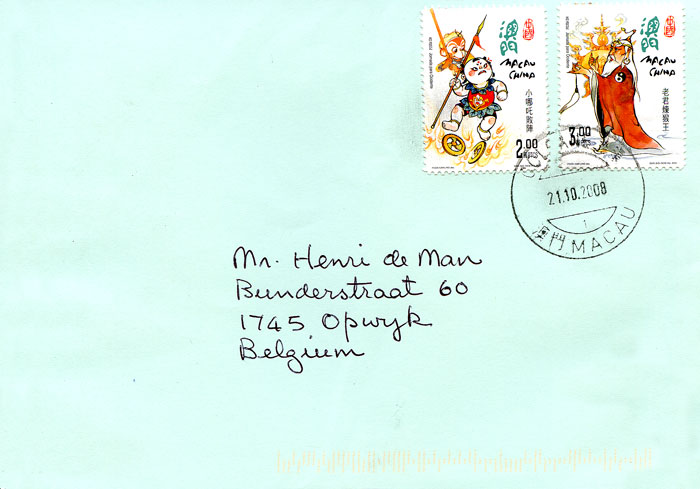 澳門
中國
MACAU
CHINA
小哪吒敗陣
2.00
澳門
中國
MACAU
CHINA
老君煉猴王
3.00
21.10.2008
1
澳門 MACAU
Mr. Henri de Man
Bunderstraat 60
1745 Opwyk
Belgium